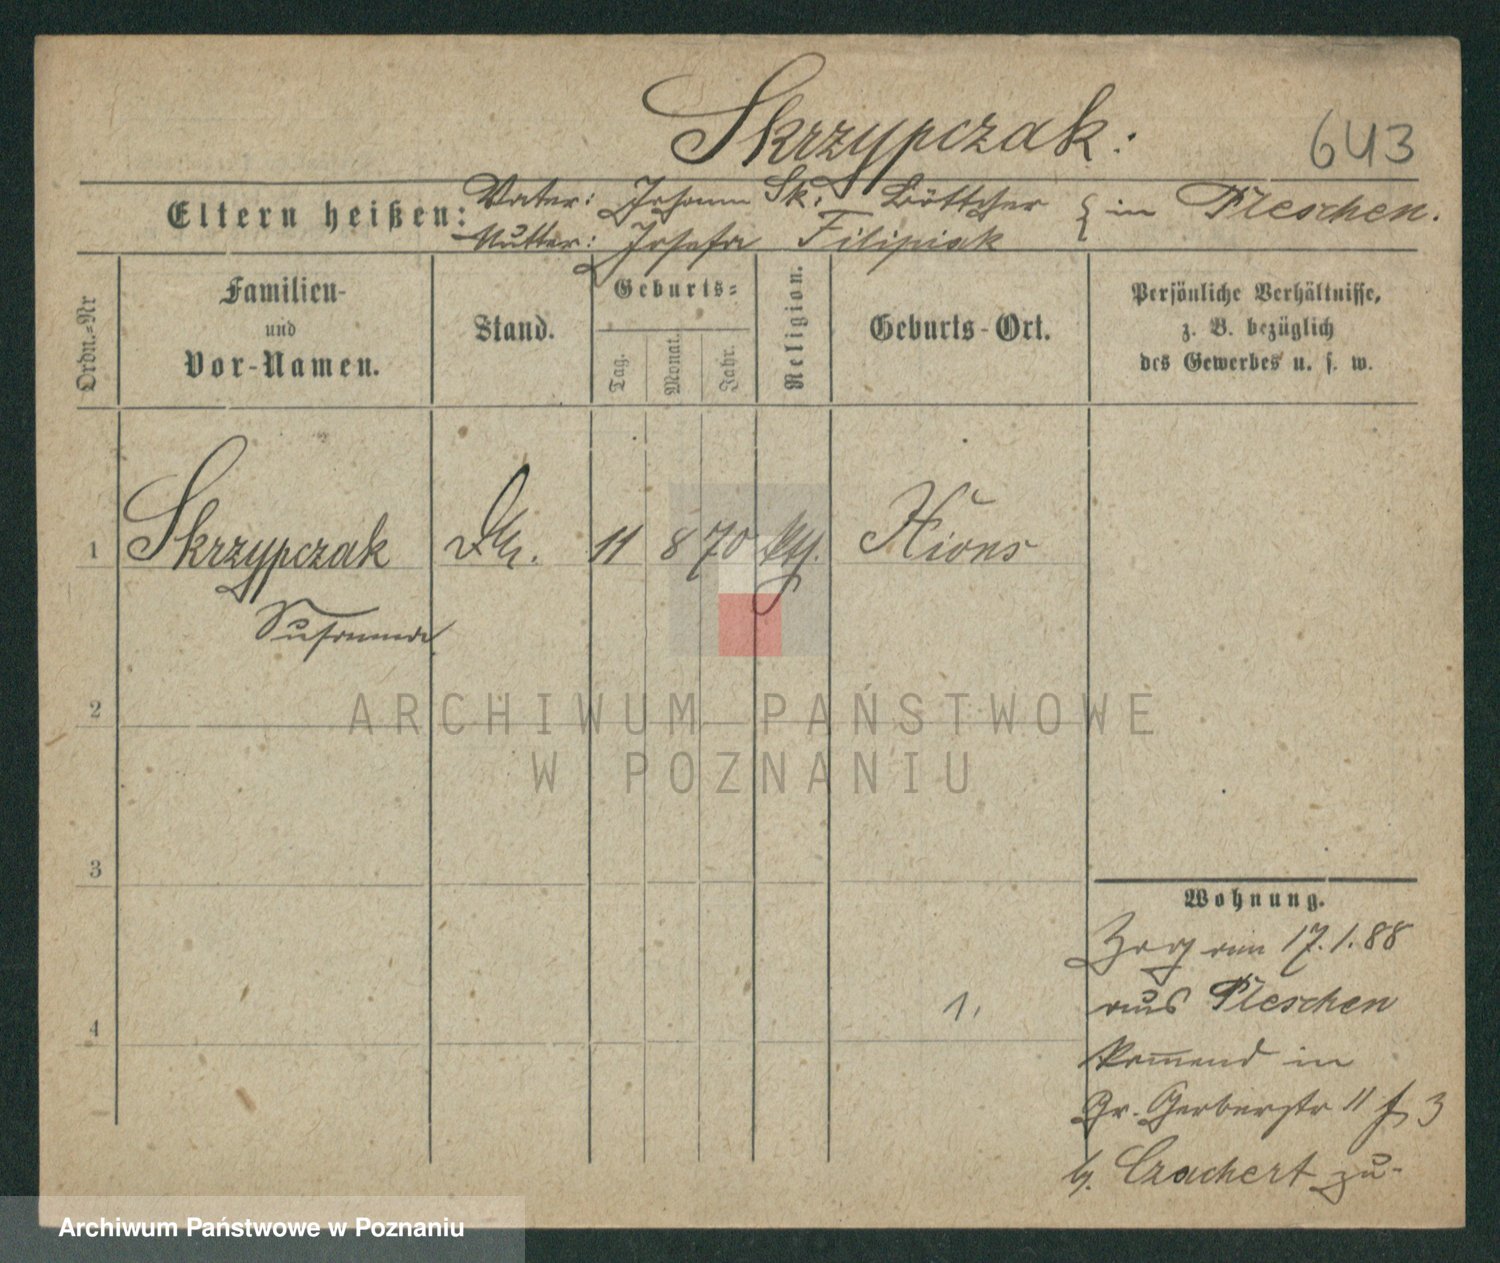 Skrzypczak:
643
Eltern heißen:
Vater: Johann Sk. Böttcher
Mutter: Josefa Filipiak
in Pleschen.
Ordn.=Nr
Familien-
und
Vor-Namen.
Stand.
Geburts=
Tag.
Monat.
Jahr.
Religion.
Geburts-Ort.
Persönliche Verhältnisse,
z. B. bezüglich
des Gewerbes u. s. w.
1 Skrzypczak 11 8 70 Xions
Susanna
2
3
4
1.
Wohnung.
Zog am 17.1.88
aus Pleschen
kommend in
Gr. Gerberstr 11 3
b. Crachert zu-
ARCHIWUM PAŃSTWOWE
W POZNANIU
Archiwum Państwowe w Poznaniu